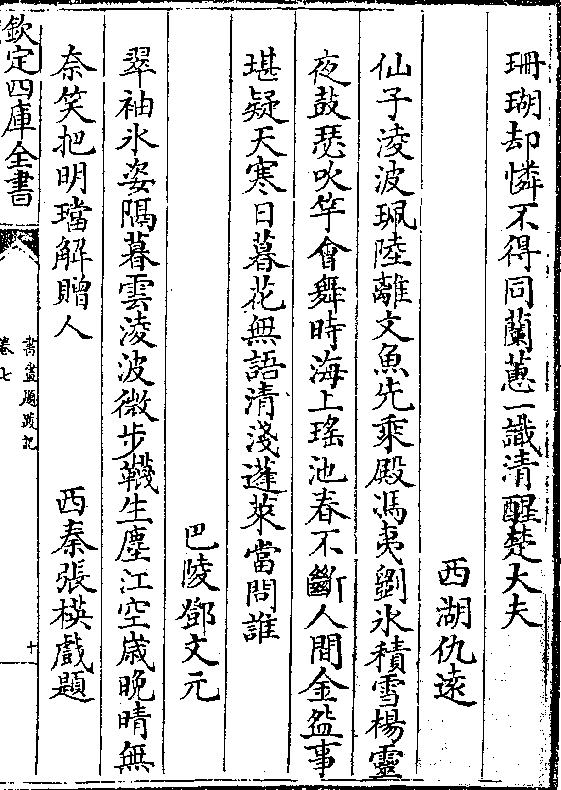 珊瑚却憐不得同蘭蕙一識清醒楚大夫
西湖仇遠
仙子淩波珮陸離文魚先乘殿馮夷剷氷積雪楊靈
夜鼓瑟吹竽會舞時海上瑤池春不斷人間金盌事
堪疑天寒日暮花無語清淺蓬萊當問誰
巴陵鄧文元
翠袖氷姿隔暮雲淩波微步韈生塵江空歲晚晴無
奈笑把明璫解贈人 西秦張楧戲題
欽定四庫全書
書畫題跋記
卷七
十